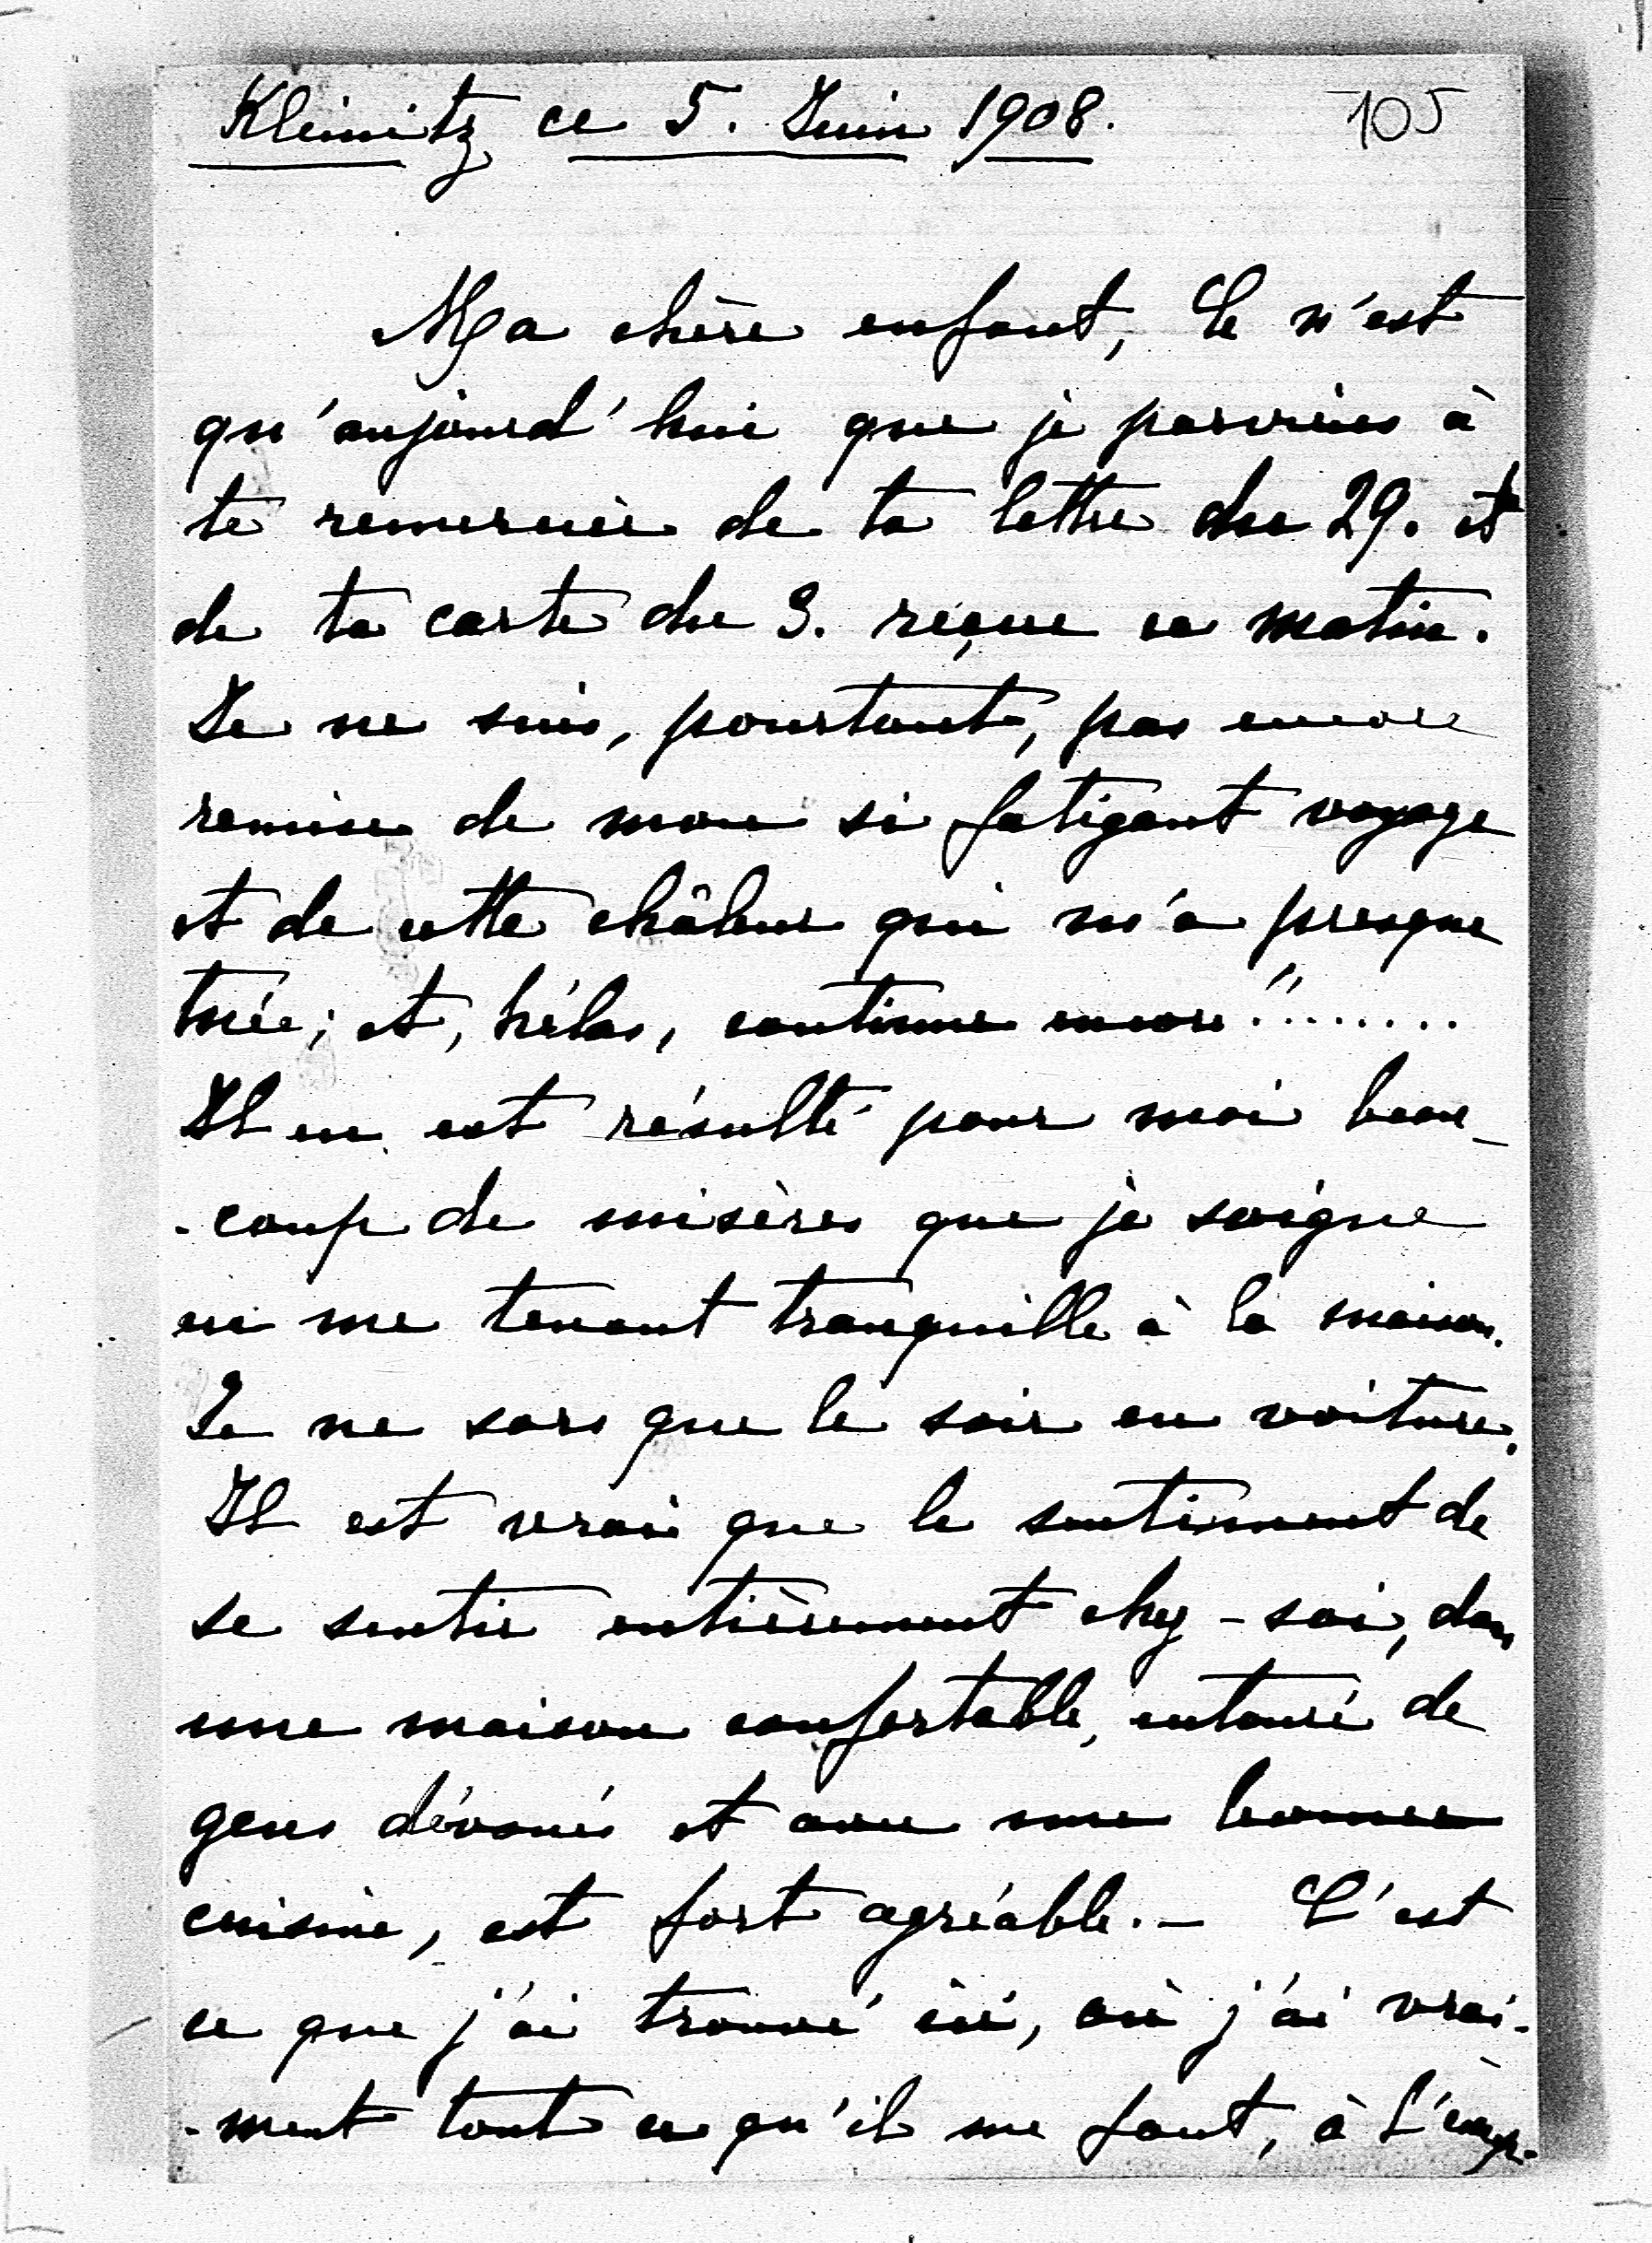 Kleinitz ce 5. Juin 1908. 105
Ma chère enfant, Ce n'est
qu'aujourd'hui que je parviens à
te remercier de ta lettre du 29. et
de ta carte du 3. reçue ce matin.
Je ne suis, pourtant, pas encore
remise de mon si fatigant voyage
et de cette châleur qui m'a presque
tuée; et, hélas, continue encore!........
Il en est résulté pour moi beau-
-coup de misères que je soigne
en me tenant tranquille à la maison.
Je ne sors que le soir en voiture.
Il est vrai que le sentiment de
se sentir entièrement chez-soi, dans
une maison confortable, entouré de
gens dévoués et avec une bonne
cuisine, est fort agréable. — C'est
ce que j'ai trouvé ici, où j'ai vrai-
-ment tout ce qu'il me faut, à l'exp-